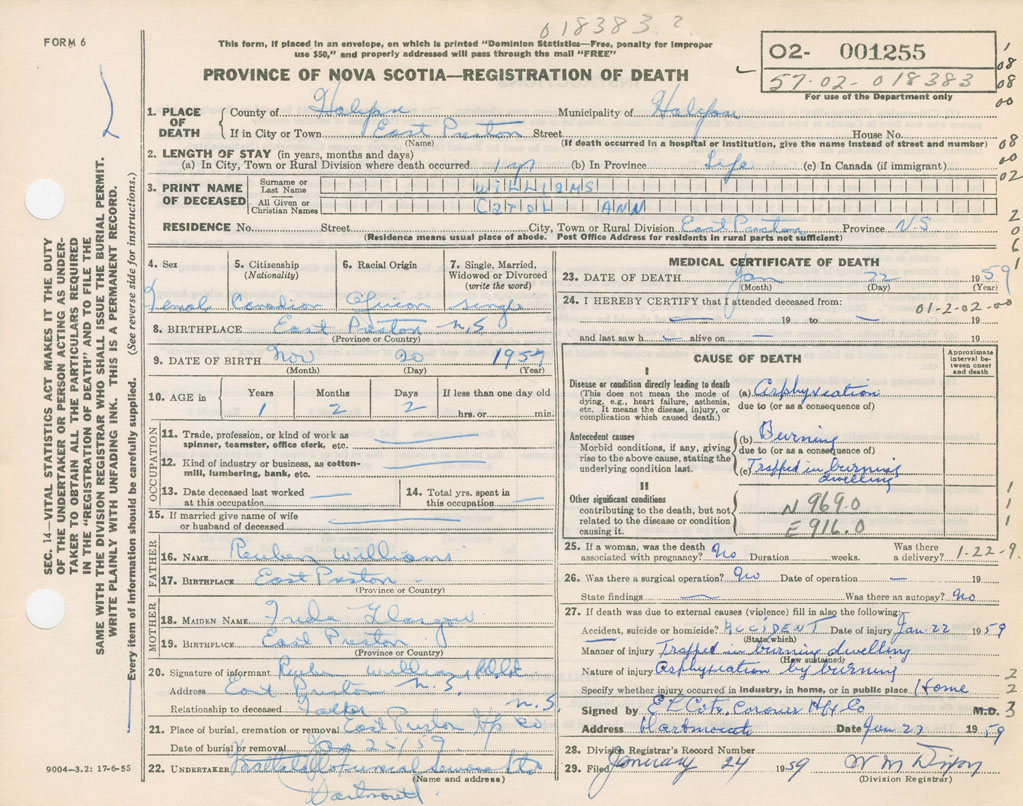 018383 ?
FORM 6
This form, if placed in an envelope, on which is printed "Dominion Statistics—Free, penalty for improper
use $50," and properly addressed will pass through the mail "FREE"
O2- 001255
57-02-018383
For use of the Department only
PROVINCE OF NOVA SCOTIA—REGISTRATION OF DEATH
1. PLACE OF DEATH
County of Halifax Municipality of Halifax
If in City or Town East Preston Street House No.
(Name) (If death occurred in a hospital or institution, give the name instead of street and number)
2. LENGTH OF STAY (in years, months and days)
(a) In City, Town or Rural Division where death occurred 1 yr (b) In Province Life (c) In Canada (if immigrant)
3. PRINT NAME OF DECEASED
Surname or Last Name WILLIAMS
All Given or Christian Names Carol ANN
RESIDENCE No. Street City, Town or Rural Division East Preston Province N-S
(Residence means usual place of abode. Post Office Address for residents in rural parts not sufficient)
4. Sex 5. Citizenship (Nationality) 6. Racial Origin 7. Single, Married, Widowed or Divorced (write the word)
Female Canadian African Single
8. BIRTHPLACE East Preston N.S
(Province or Country)
9. DATE OF BIRTH Nov 20 1957
(Month) (Day) (Year)
10. AGE in Years Months Days If less than one day old
1 2 2 hrs. or min.
OCCUPATION
11. Trade, profession, or kind of work as spinner, teamster, office clerk, etc.
12. Kind of industry or business, as cotton-mill, lumbering, bank, etc.
13. Date deceased last worked at this occupation
14. Total yrs. spent in this occupation
15. If married give name of wife or husband of deceased
FATHER
16. NAME Reuben Williams
17. BIRTHPLACE East Preston
(Province or Country)
MOTHER
18. MAIDEN NAME Freda Glasgow
19. BIRTHPLACE East Preston
(Province or Country)
20. Signature of informant Reuben Williams
Address East Preston N.S
Relationship to deceased Father N.S
21. Place of burial, cremation or removal East Preston Hfx Co
Date of burial or removal Jan 24/59
22. UNDERTAKER Funeral Service Ltd
(Name and address)
Dartmouth
9004-3.2: 17-6-55
MEDICAL CERTIFICATE OF DEATH
23. DATE OF DEATH Jan 22 1959
(Month) (Day) (Year)
24. I HEREBY CERTIFY that I attended deceased from:
01-2-02-00
— 19 to — 19
and last saw h — alive on — 19
CAUSE OF DEATH
Approximate interval between onset and death
I
Disease or condition directly leading to death
(This does not mean the mode of dying, e.g., heart failure, asthenia, etc. It means the disease, injury, or complication which caused death.)
(a) Asphyxiation
due to (or as a consequence of)
Antecedent causes
Morbid conditions, if any, giving rise to the above cause, stating the underlying condition last.
(b) Burning
due to (or as a consequence of)
(c) Trapped in burning dwelling
II
Other significant conditions
contributing to the death, but not related to the disease or condition causing it.
N 969.0
E 916.0
25. If a woman, was the death associated with pregnancy? No Duration weeks. Was there a delivery?
1-22-9
26. Was there a surgical operation? No Date of operation — 19
State findings — Was there an autopsy? No
27. If death was due to external causes (violence) fill in also the following:
Accident, suicide or homicide? ACCIDENT Date of injury Jan. 22 1959
(State which)
Manner of injury Trapped in burning dwelling
(How sustained)
Nature of injury Asphyxiation by burning
Specify whether injury occurred in industry, in home, or in public place Home
Signed by Coroner Hfx Co M.D.
Address Dartmouth Date Jan 22 1959
28. Division Registrar's Record Number
29. Filed January 24 1959 W M Dixon
(Division Registrar)
SEC. 14—VITAL STATISTICS ACT MAKES IT THE DUTY
OF THE UNDERTAKER OR PERSON ACTING AS UNDER-
TAKER TO OBTAIN ALL THE PARTICULARS REQUIRED
IN THE "REGISTRATION OF DEATH" AND TO FILE THE
SAME WITH THE DIVISION REGISTRAR WHO SHALL ISSUE THE BURIAL PERMIT.
WRITE PLAINLY WITH UNFADING INK. THIS IS A PERMANENT RECORD.
Every item of information should be carefully supplied. (See reverse side for instructions.)
1
08
08
00
08
00
02
2
0
6
1
1
1
1
2
2
3